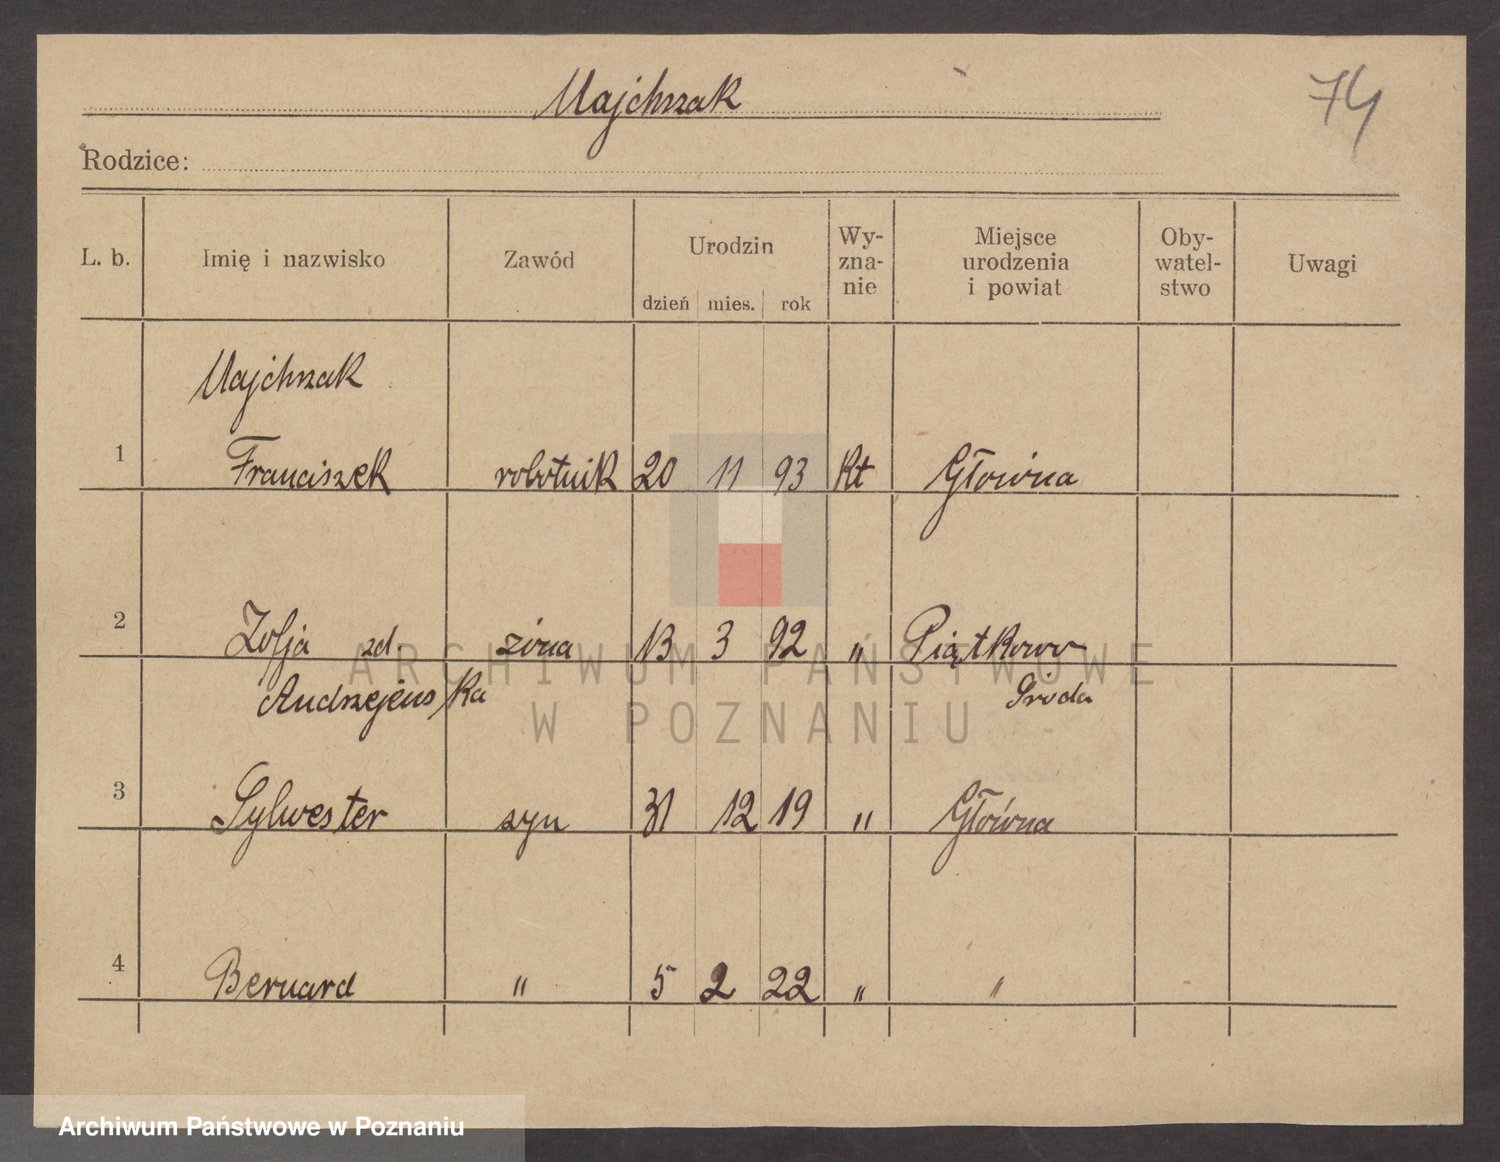 Majchrzak
74
Rodzice:
L. b. Imię i nazwisko Zawód Urodzin Wy- Miejsce Oby- Uwagi
zna- urodzenia watel-
nie i powiat stwo
dzień mies. rok
Majchrzak
1 Franciszek robotnik 20 11 93 Kt Główna
2 Zofja zd. żona 13 3 92 " Piątkowo
Andrzejewska Środa
3 Sylwester syn 31 12 19 " Główna
4 Bernard " 5 2 22 " "
ARCHIWUM PAŃSTWOWE
W POZNANIU
Archiwum Państwowe w Poznaniu